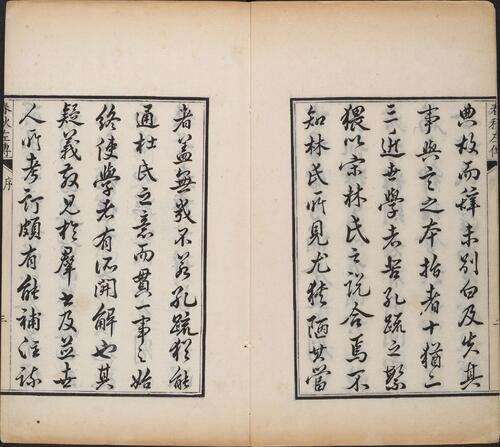 典故而諱未別白及失其
事與言之本指者十猶二
三近世學者苦孔疏之繁
猥以宗林氏之說合焉不
知林氏所見尤狹陋其當
者蓋無幾不若孔疏猶能
通杜氏之意而貫一事之始
終使學者有所開解也其
疑義散見於羣書及並世
人所考訂頗有能補注疏
春秋左傳
序
三